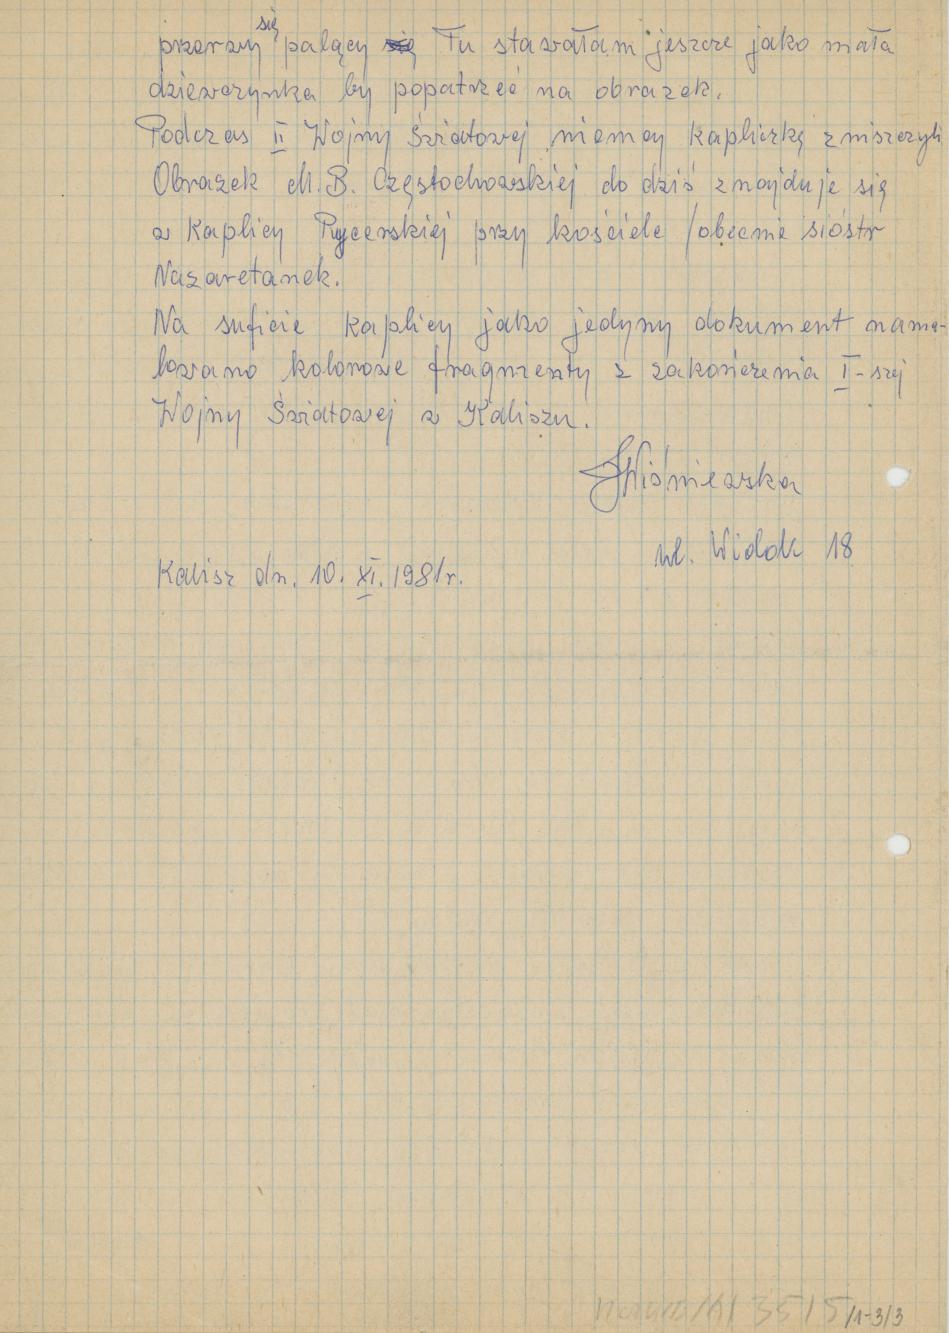 przerwy się palący się Tu stawałam jeszcze jako mała
dziewczynka by popatrzeć na obrazek.
Podczas II Wojny Światowej niemcy kapliczkę zniszczyli
Obrazek M.B. Częstochowskiej do dziś znajduje się
w Kaplicy Rycerskiej przy kościele /obecnie sióstr
Nazaretanek.
Na suficie kaplicy jako jedyny dokument nama-
lowano kolorowe fragmenty z zakończenia I-szej
Wojny Światowej w Kaliszu.
JWiśniewska
ul. Widok 18
Kalisz dn. 10. XI. 1981r.
35/5/1-3/3